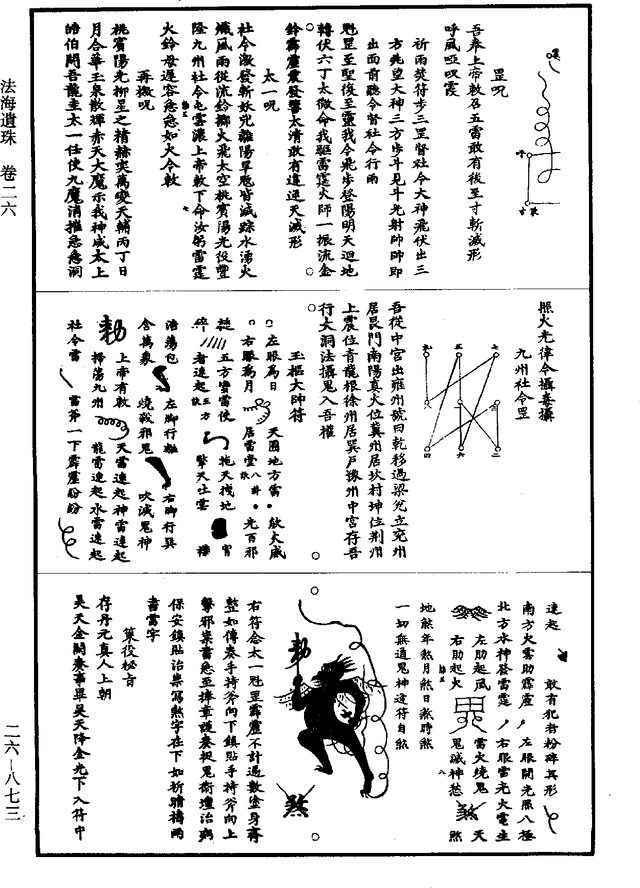 法海遺珠 卷二六
吾奉上帝敕召五雷敢有後至寸斬滅形
呼風啞吠霞
罡咒
祈雨焚符步三罡督社令大神飛伏出三
方先望大神三方步斗見斗光射帥帥即
出面前聽令督社令行雨
魁罡至聖後至靈我令飛步登陽明天迴地
轉伏六丁太微命我驅雷霆火師一振流金
鈴霹靂震發響太清敢有違逆天滅形
太一咒
杜令激發斬妖兇離陽旱魃皆滅踪水湧火
熾風雨從流鈴擲火飛太空桃賓陽光役豐
隆九州社令屯雲濃上帝敕下命汝躬雷霆
火鈴毋遲容急急如火令敕
再撥咒
桃賓陽光柳星之精赫奕萬變天輔丙丁日
月合華玉泉散輝赤天大魔示我神威太上
皓伯聞吾龍圭太一任使九魔消摧急急洞
照火光律令攝毒攝
九州社令罡
吾從中宮出雍州號曰乾移過梁兌立兗州
居艮門南陽真火位冀州居坎村坤位荆州
上震位青龍根徐州居巽戶豫州中宮存吾
行大洞法攝鬼入吾權
玉樞大帥符
左眼為日
天圓地方雷
右眼為月
居雷堂
光百邪
五方蠻雷使
拖天拽地
者速起
擎天吐雲
活蕩包
左脚行雄
右脚行兵
含萬象
燒裁邪鬼
吹滅鬼神
上帝有敕
天雷速起神雷速起
掃蕩九州
龍雷速起水雷速起
社令雷
雷斧一下霹靂紛紛
速起
敢有犯者粉碎其形
南方火雲助霹靂
左眼開光照八極
北方水神發雷霆
右眼雷光火電生
左肋起風
雷火燒鬼
天
右肋起火
鬼滅神愁
煞
地煞年煞月煞日煞時煞
一切無道鬼神逢符自煞
右符念太一魁罡霹靂不計過數塗身齊
整如傳奏手持斧向下鎮貼手持斧向上
擊邪祟書急至捧章護奏捉鬼衛壇治病
保安鎮貼治祟寫煞字在下如祈晴禱雨
書雷字
策役秘旨
存丹元真人上朝
昊天金闕奏事畢昊天降金光下入符中
二六－八七三